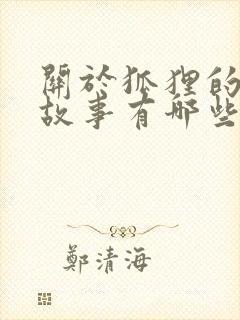 關於狐狸的
故事有哪些
鄭清海